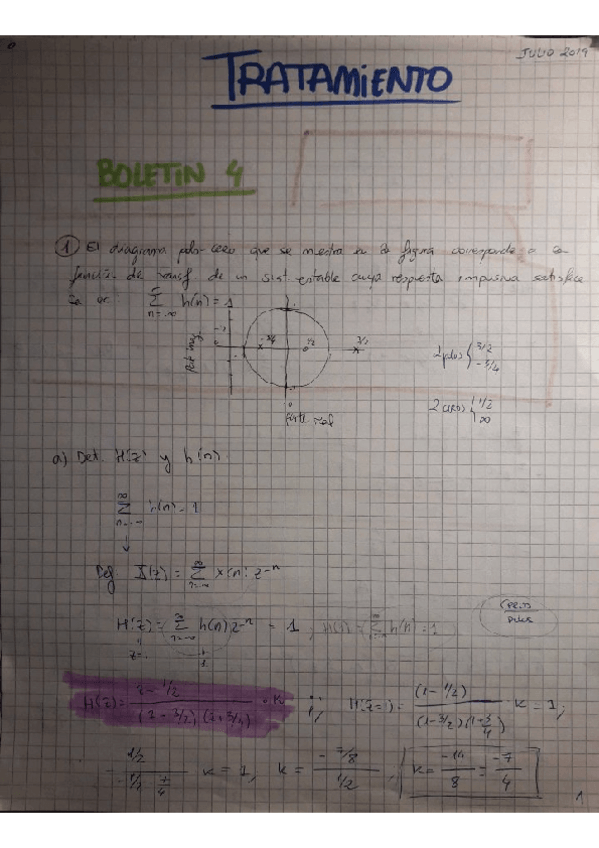 JULIO 2019
TRATAMIENTO
BOLETIN 4
1 El diagrama polo-cero que se muestra en la figura corresponde a la
función de transf de un sist. estable cuya respuesta impulsiva satisface
la ec: ∑ h(n) = 1
n=-∞
-3/4 1/2 3/2
Parte real
2 polos { 3/2
-3/4
2 ceros { 1/2
∞
a) Det. H(z) y h(n).
∑ h(n) = 1
Def X(z) = ∑ x(n) z^-n
H(z) = ∑ h(n) z^-n = 1; H(1) = ∑ h(n) = 1
ceros
polos
H(z) = z - 1/2 / (z - 3/2)(z + 3/4) · K ; H(z=1) = (1 - 1/2) / (1 - 3/2)(1 + 3/4) K = 1;
1/2 / -1/2 · 7/4 K = 1, K = -7/8 / 1/2, K = -14/8 = -7/4
1